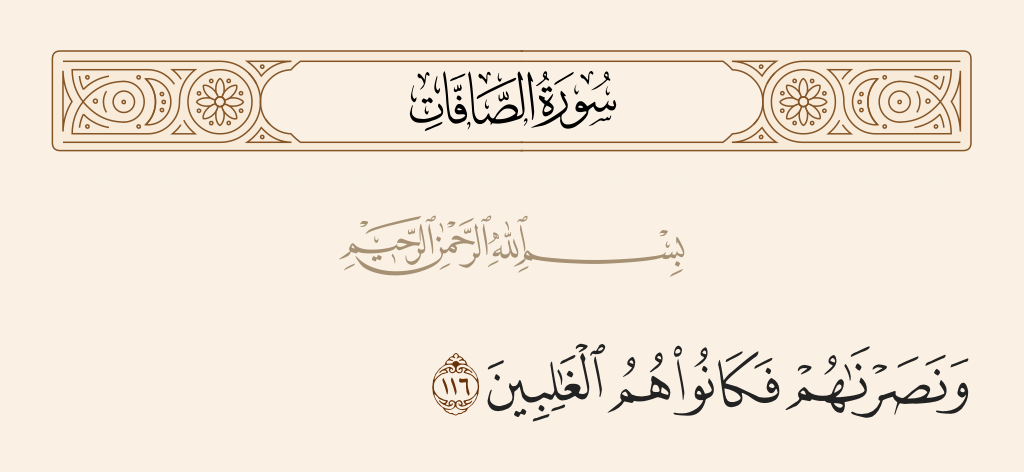 سُورَةُ الصَّافَّاتِ
بِسْمِ ٱللَّهِ ٱلرَّحْمَٰنِ ٱلرَّحِيمِ
وَنَصَرْنَٰهُمْ فَكَانُوا۟ هُمُ ٱلْغَٰلِبِينَ ١١٦